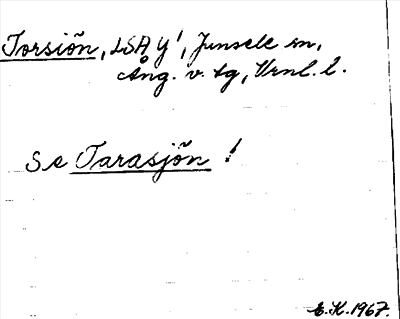 Torsiön, LSA y', Junsele sn,
Ång. v. tg, Vrnl. l.
Se Tarasjön !
E.K. 1967.